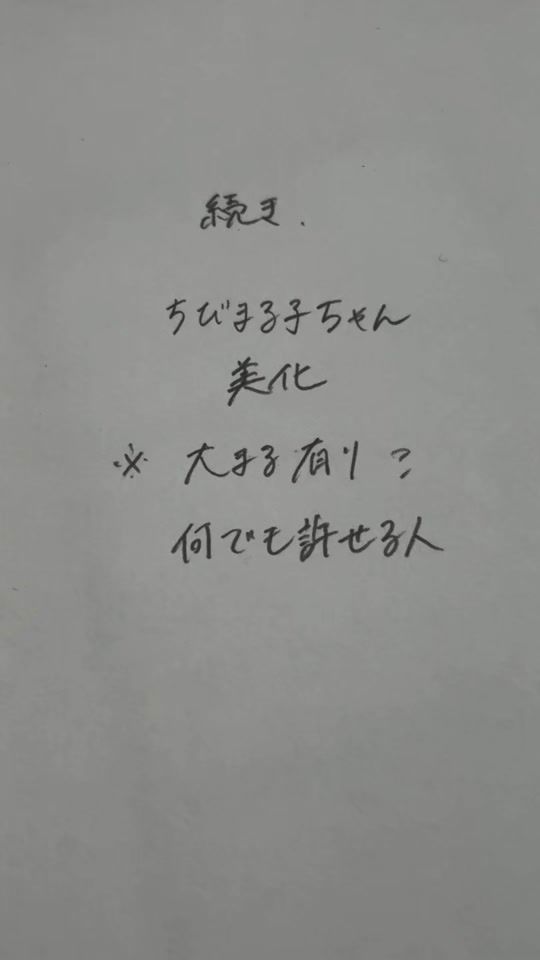 続き.
ちびまる子ちゃん
美化
※ 大まる有り?
何でも許せる人